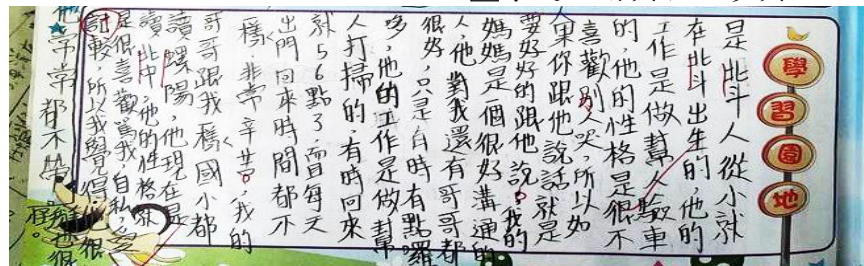 學習園地
是北斗人從小就
在北斗出生的,他的
工作是做幫人驗車
的,他的性格是很不
喜歡別人哭,所以如
果你跟他說話就是
要好好的跟他說。我的
媽媽是一個很好溝通的
人,他對我還有哥哥都
很好,只是有時有點囉
嗦,他的工作是做幫
人打掃的,有時回來
就56點了而每天
出門回來時間都不
樣非常辛苦。我的
哥哥跟我樣國小都
讀螺陽,他現在是
讀北中,他的性格就
是很喜歡罵我自私,愛
計較,所以我覺得 很
他常常都不